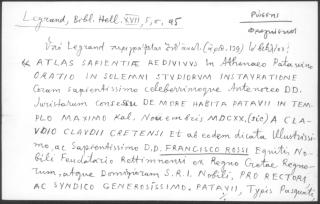 Legrand, Bibl. Hell. XVII, 5, σ, 95
ΡΩΣΣΗΣ
Φραγκίσκος
Ὑπὸ Legrand περιγράφεται (ἀριθ. 139) τὸ βιβλίον:
ATLAS SAPIENTIÆ REDIVIVUS in Athenaeo Patavino
ORATIO IN SOLEMNI STUDIORUM INSTAVRATIONE
Coram sapientissimo celeberrimoque Antenoreo DD.
Juristarum consessu DE MORE HABITA PATAVII IN TEM-
PLO MAXIMO Kal. Novembris MDCXX, (sic) A CLA-
VDIO CLAVDII CRETENSI Et ab eodem dicata Illustrissi-
mo, ac Sapientissimo D.D. FRANCISCO ROSSI Equiti, No-
bili Feudatario Rettimnensi ex Regno Cretae Regno-
rum, atque Dominiorum S.R.I. Nobili, PRO RECTORE
AC SYNDICO GENEROSISSIMO. PATAVII, Typis Pasquati,